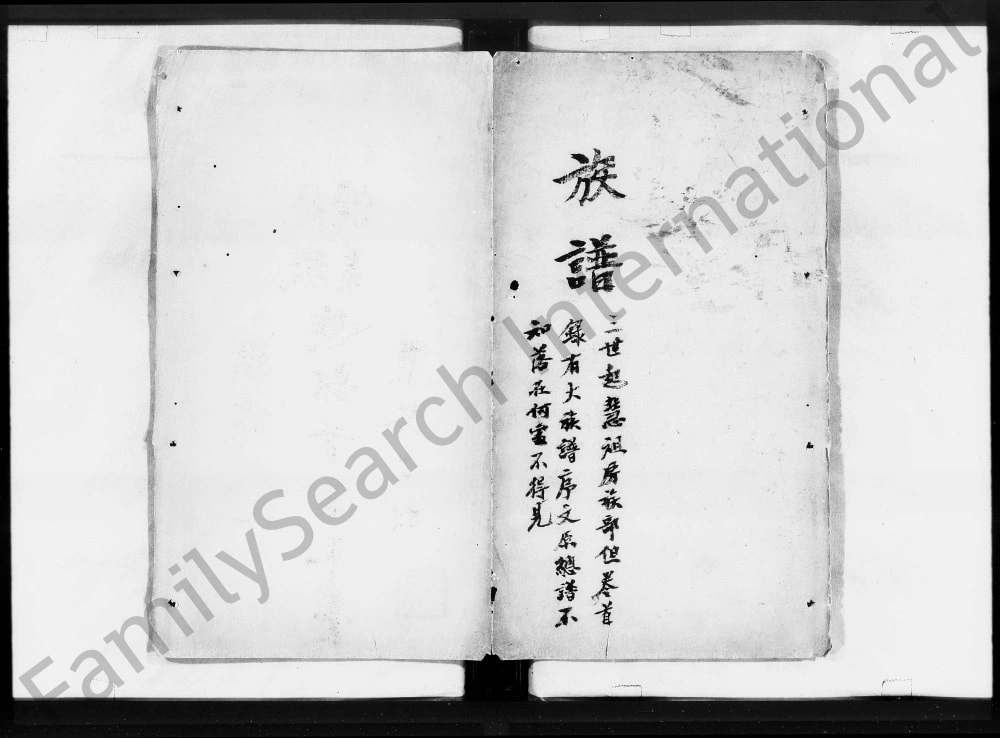 族譜
三世起慧祖房族部但卷首
錄有大族譜序文原總譜不
知落在何處不得見
FamilySearch International